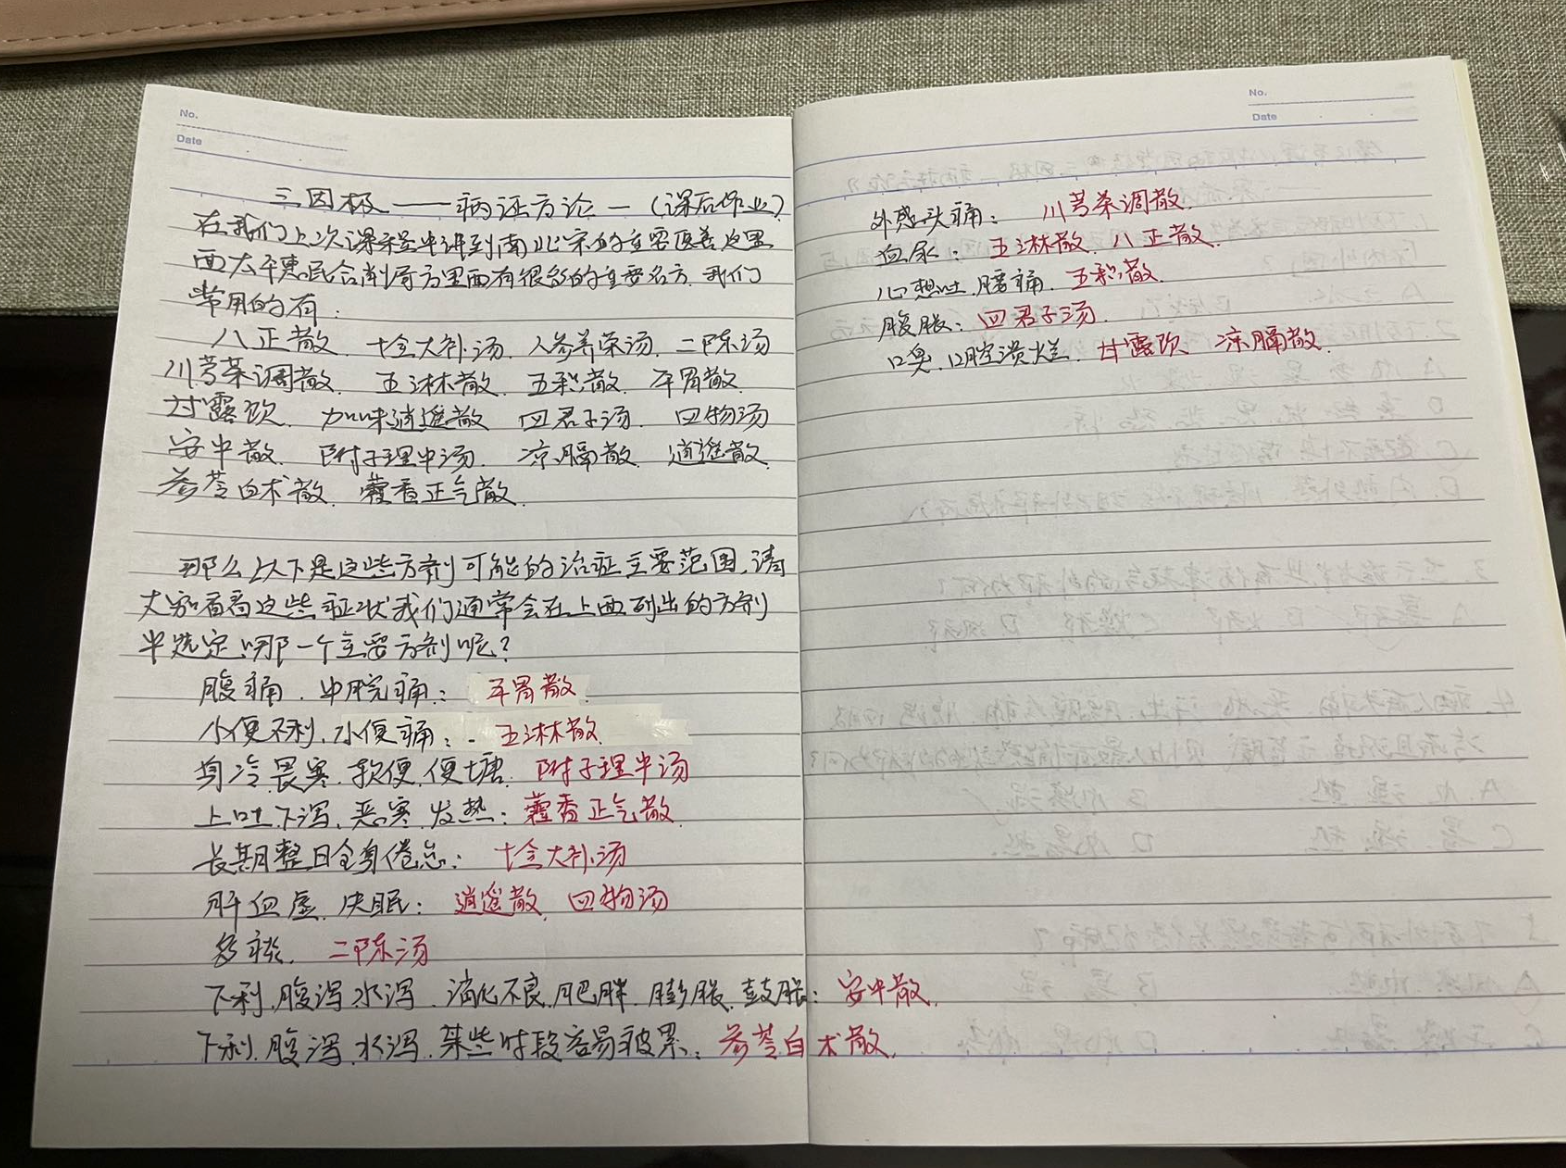 No.
Date
三因极——病证方论一(课后作业)
在我们上次课程中讲到南北宋的主要医著这里
面太平惠民合剂局方里面有很多的重要名方.我们
常用的有:
八正散.十全大补汤.人参养荣汤.二陈汤
川芎茶调散.五淋散.五积散.平胃散.
甘露饮.加味逍遥散.四君子汤.四物汤
安中散.附子理中汤.凉膈散.逍遥散.
参苓白术散.藿香正气散.
那么以下是这些方剂可能的治症主要范围.请
大家看看这些症状我们通常会在上面列出的方剂
中选定哪一个主要方剂呢?
腹痛.中脘痛:平胃散
小便不利.小便痛:五淋散
身冷畏寒.软便.便塘.附子理中汤
上吐下泻.恶寒.发热:藿香正气散.
长期整日全身倦怠:十全大补汤
肝血虚.失眠:逍遥散.四物汤
多痰.二陈汤
下利.腹泻.水泻.消化不良.肥胖.膨胀.鼓胀:安中散.
下利.腹泻.水泻.某些时段容易疲累:参苓白术散.
No.
Date
外感头痛:川芎茶调散.
血尿:五淋散.八正散.
心想吐.腰痛.五积散.
腹胀:四君子汤.
口臭.口腔溃烂.甘露饮.凉膈散.